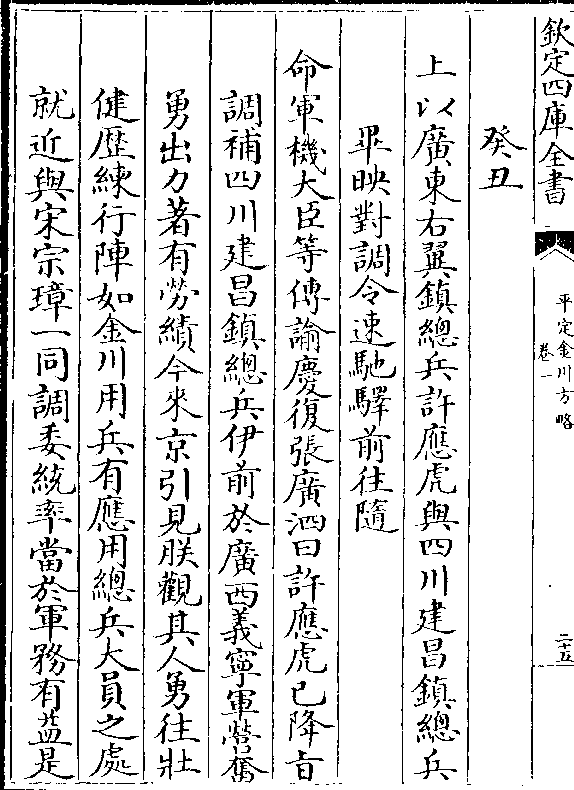 欽定四庫全書
平定金川方略
卷一
二十五
癸丑
上以廣東右翼鎮總兵許應虎與四川建昌鎮總兵
畢映對調令速馳驛前往隨
命軍機大臣等傳諭慶復張廣泗曰許應虎已降旨
調補四川建昌鎮總兵伊前於廣西義寧軍營奮
勇出力著有勞績今來京引見朕觀其人勇往壯
健歴練行陣如金川用兵有應用總兵大員之處
就近與宋宗璋一同調委統率當於軍務有益是